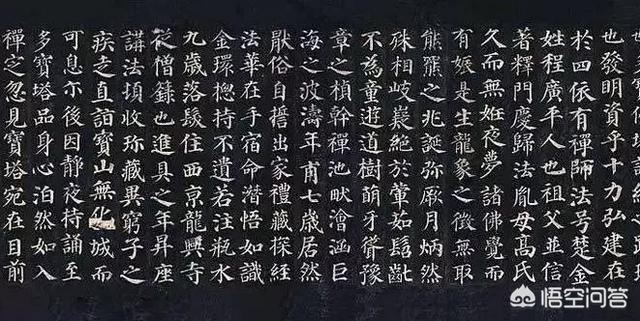 也發明資乎十力弘建在
於四依有禪師法号楚金
姓程廣平人也祖父並信
著釋門慶歸法胤母髙氏
久而無姙夜夢諸佛覺而
有娠是生龍象之徵無取
熊羆之兆誕弥厥月炳然
殊相岐嶷絕於葷茹髫齔
不為童遊道樹萌牙聳豫
章之楨幹禪池畎澮涵巨
海之波濤年甫七歲居然
猒俗自誓出家禮藏探經
法華在手宿命潜悟如識
金環揔持不遺若注瓶水
九歲落髮住西京龍興寺
從僧籙也進具之年昇座
講法頓收珎藏異窮子之
疾走直詣寶山無化城而
可息尒後因靜夜持誦至
多寶塔品身心泊然如入
禪㝎忽見寶塔宛在目前
悟空问答